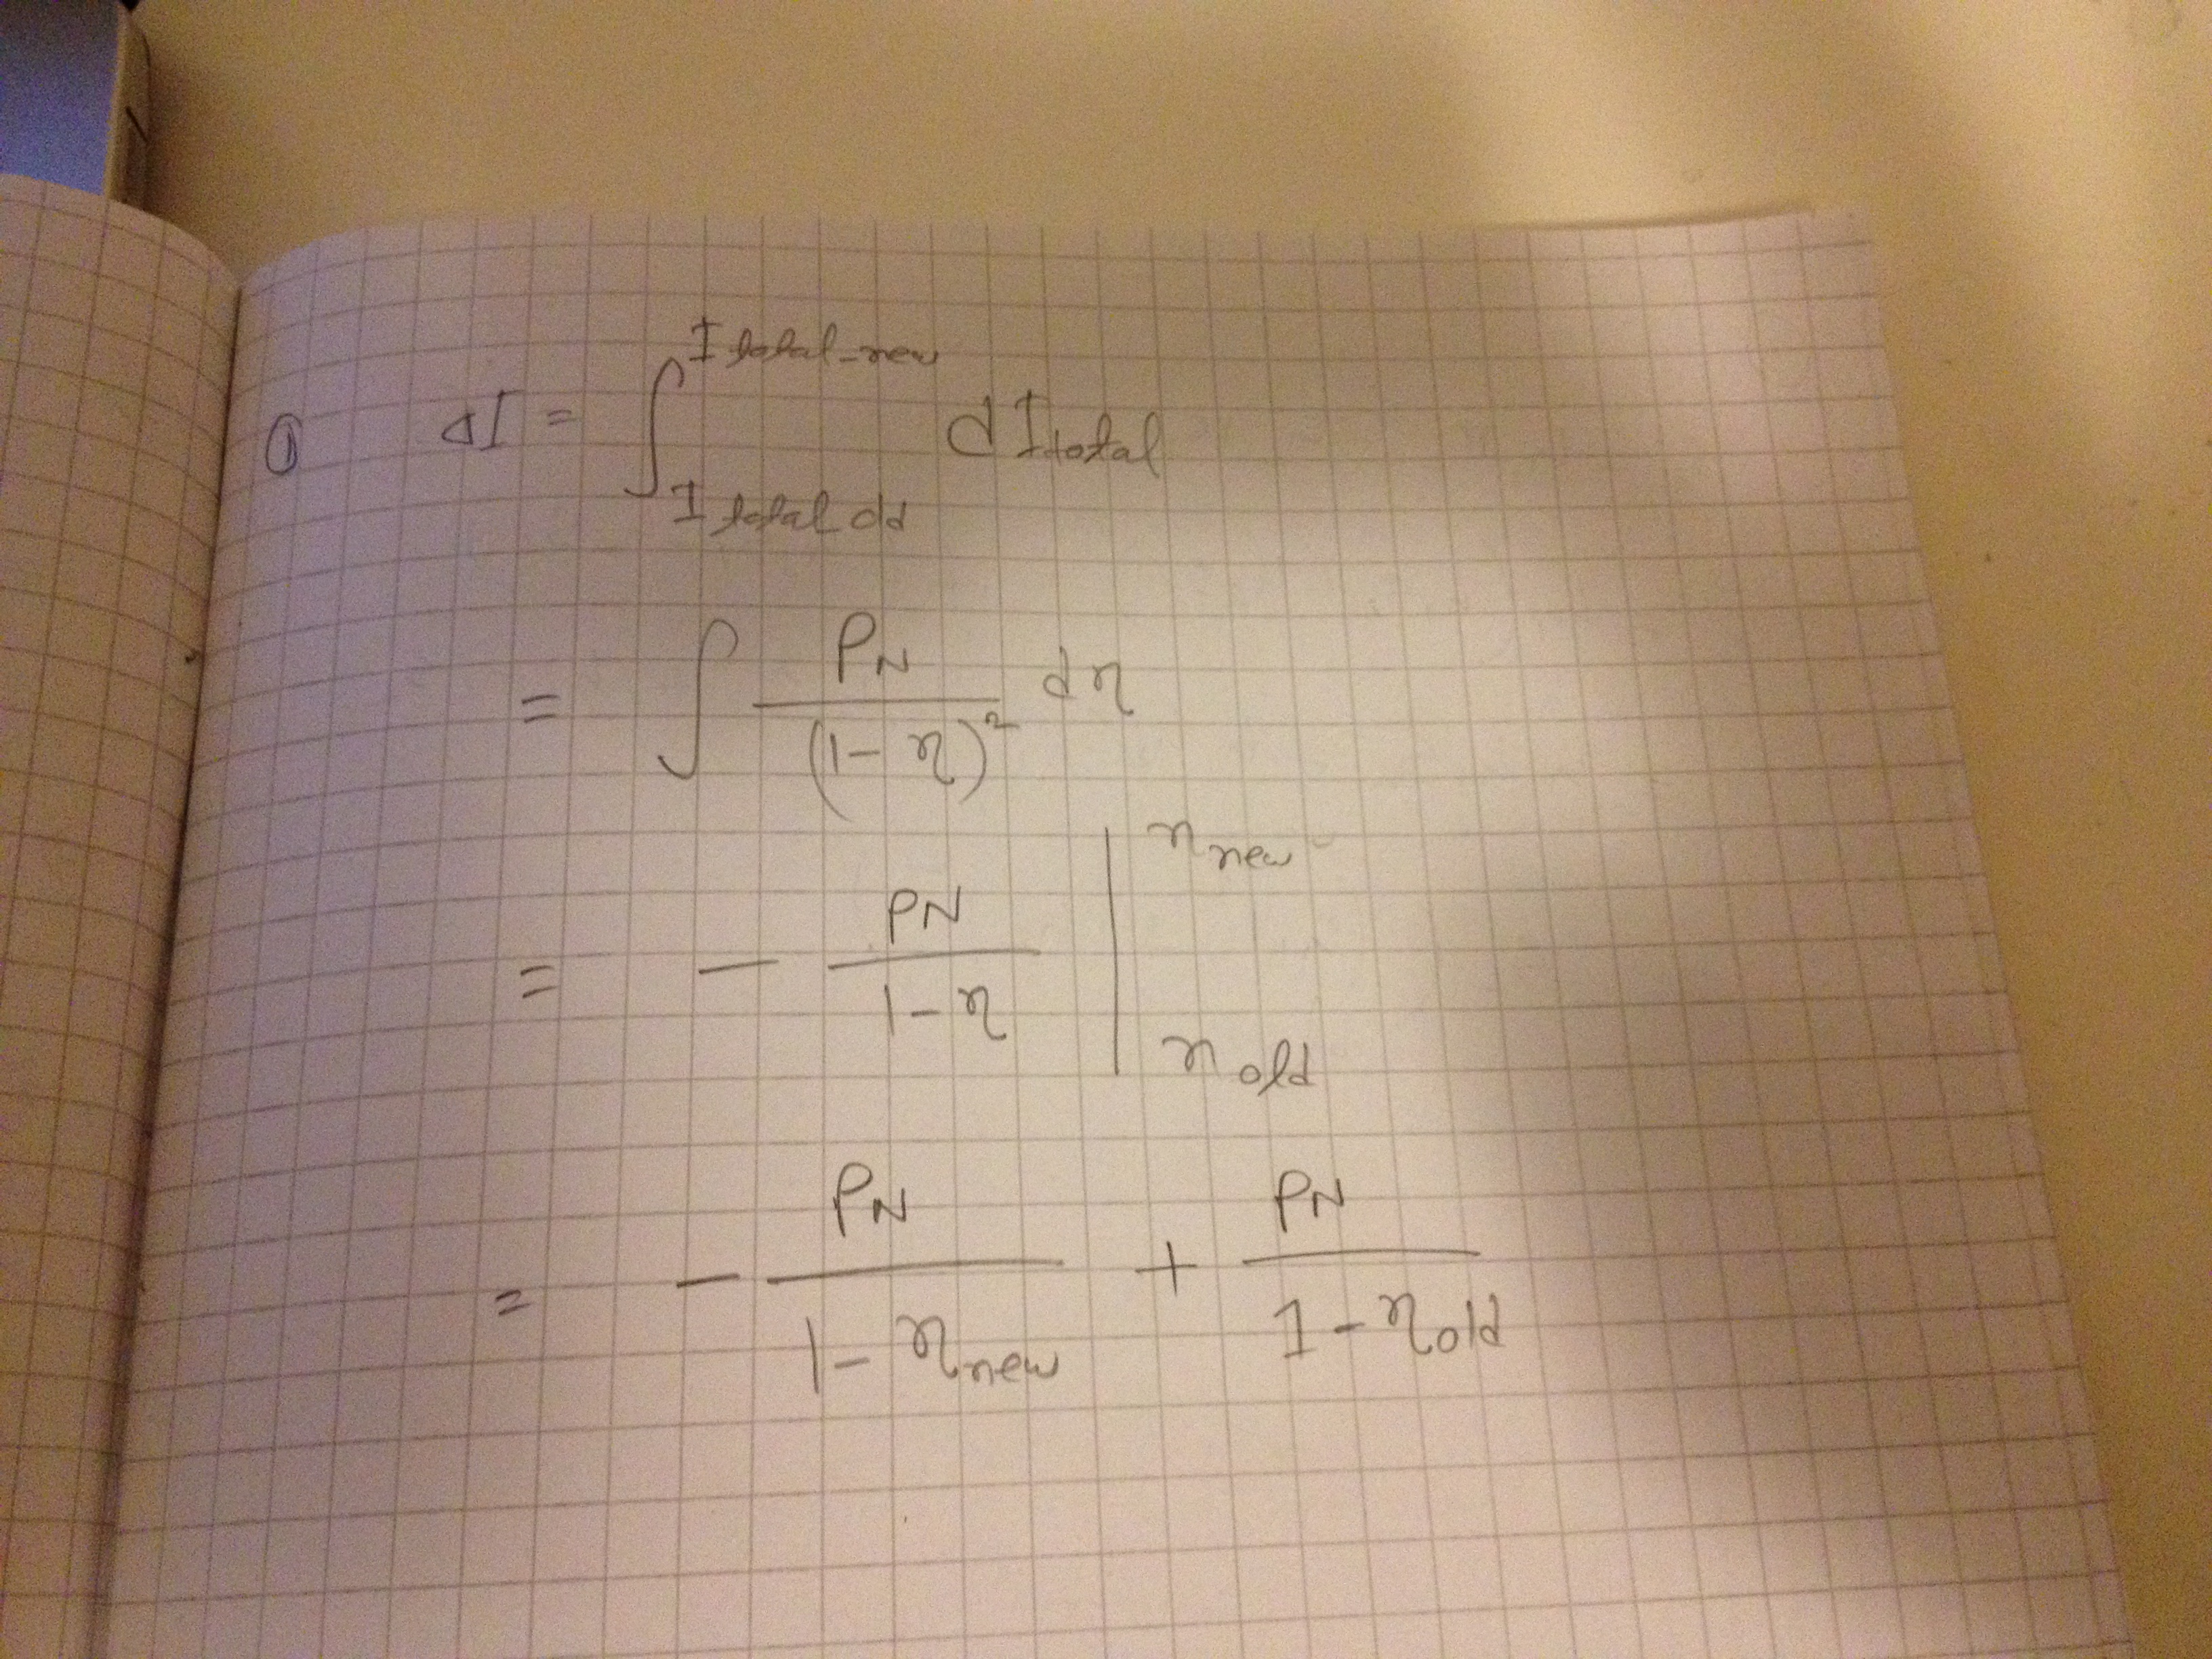 ① ΔI = ∫_{I total old}^{I total-new} d I total
= ∫ P_N / (1 - η)² dη
= - P_N / (1 - η) |_{η old}^{η new}
= - P_N / (1 - η new) + P_N / (1 - η old)